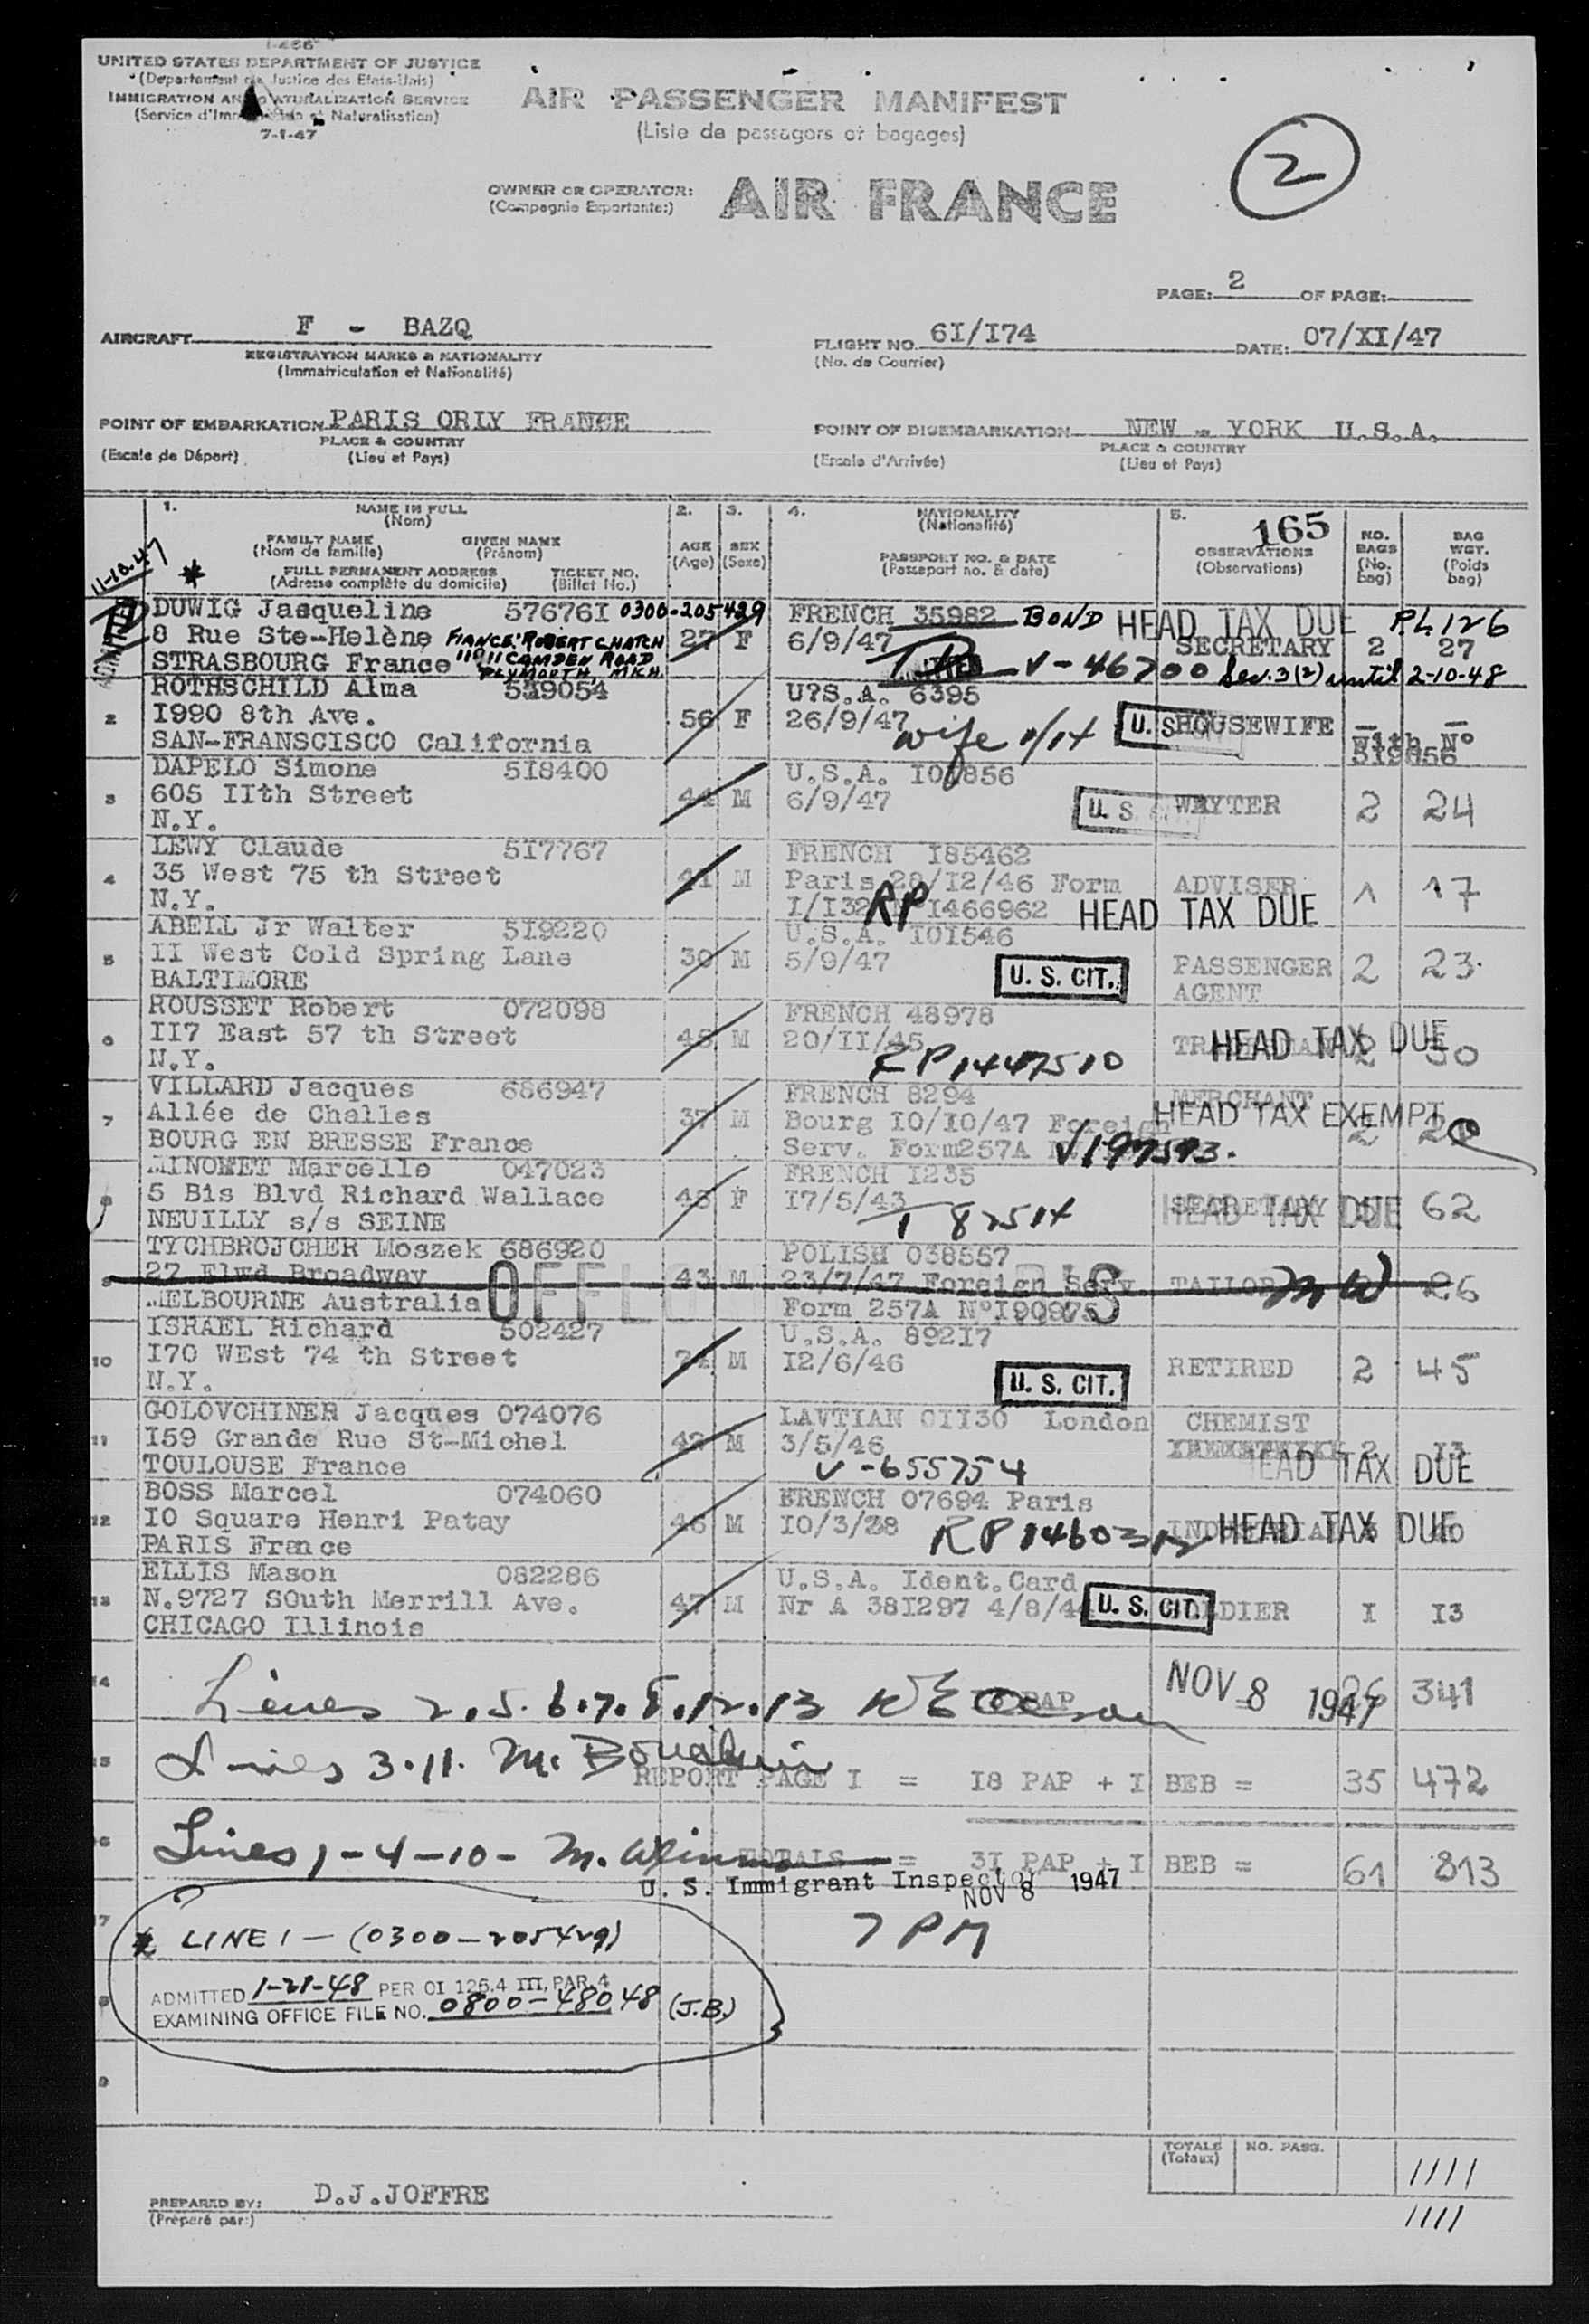 I-466
UNITED STATES DEPARTMENT OF JUSTICE
(Departement de Justice des Etats-Unis)
IMMIGRATION AND NATURALIZATION SERVICE
(Service d'Immigration et Naturalisation)
7-1-47
AIR PASSENGER MANIFEST
(Liste de passagers et bagages)
2
OWNER OR OPERATOR:
(Compagnie Exportante:)
AIR FRANCE
PAGE: 2 OF PAGE:
AIRCRAFT F - BAZQ
REGISTRATION MARKS & NATIONALITY
(Immatriculation et Nationalité)
FLIGHT NO. 6I/I74 DATE: 07/XI/47
(No. de Courrier)
POINT OF EMBARKATION PARIS ORLY FRANCE
PLACE & COUNTRY
(Escale de Départ) (Lieu et Pays)
POINT OF DISEMBARKATION NEW - YORK U.S.A.
PLACE & COUNTRY
(Escale d'Arrivée) (Lieu et Pays)
1. NAME IN FULL 2. 3. 4. NATIONALITY 5. 165
(Nom) (Nationalité)
FAMILY NAME GIVEN NAME AGE SEX PASSPORT NO. & DATE OBSERVATIONS NO. BAGS BAG WGT.
(Nom de famille) (Prénom) (Age) (Sexe) (Passeport no. & date) (Observations) (No. bag) (Poids bag)
FULL PERMANENT ADDRESS TICKET NO.
(Adresse complète du domicile) (Billet No.)
11-10-47 *
ADMITTED
DUWIG Jacqueline 57676I 0300-205429 FRENCH 35982 BOND HEAD TAX DUE P.L 126
8 Rue Ste-Helène FIANCE: ROBERT C. HATCH 27 F 6/9/47 SECRETARY 2 27
STRASBOURG France 11811 CAMDEN ROAD V-46700 Sec. 3(2) until 2-10-48
PLYMOUTH, MICH.
ROTHSCHILD Alma 519054 U?S.A. 6395
2 I990 8th Ave. 56 F 26/9/47 wife U.S. HOUSEWIFE - -
SAN-FRANSCISCO California with N° 519056
DAPELO Simone 5I8400 U.S.A. I00856
3 605 IIth Street 44 M 6/9/47 U.S. WAYTER 2 24
N.Y.
LEWY Claude 5I7767 FRENCH I85462
4 35 West 75 th Street 41 M Paris 28/I2/46 Form ADVISER 1 17
N.Y. I/I32 RP I466962 HEAD TAX DUE
ABELL Jr Walter 5I9220 U.S.A. I0I546
5 II West Cold Spring Lane 30 M 5/9/47 U. S. CIT. PASSENGER 2 23
BALTIMORE AGENT
ROUSSET Robert 072098 FRENCH 48978
6 II7 East 57 th Street 48 M 20/II/45 HEAD TAX DUE 2 30
N.Y. RP1447510
VILLARD Jacques 686947 FRENCH 8294 MERCHANT
7 Allée de Challes 37 M Bourg I0/I0/47 Foreign HEAD TAX EXEMPT 2 20
BOURG EN BRESSE France Serv. Form257A V197593.
MINOMET Marcelle 047023 FRENCH I235
8 5 Bis Blvd Richard Wallace 48 F I7/5/43 SECRETARY 62
NEUILLY s/s SEINE T 82514 HEAD TAX DUE
TYCHBROJCHER Moszek 686920 POLISH 038557
9 27 Elwd Broadway 43 M 23/7/47 Foreign Serv. TAILOR MW 26
MELBOURNE Australia Form 257A N°I90975
ISRAEL Richard 502427 U.S.A. 892I7
10 I70 WEst 74 th Street 74 M I2/6/46 RETIRED 2 45
N.Y. U. S. CIT.
GOLOVCHINER Jacques 074076 LAVTIAN 0II30 London CHEMIST
11 I59 Grande Rue St-Michel 42 M 3/5/46 2 I3
TOULOUSE France V-655754 HEAD TAX DUE
BOSS Marcel 074060 FRENCH 07694 Paris
12 I0 Square Henri Patay 46 M I0/3/38 RP 1460312 HEAD TAX DUE
PARIS France
ELLIS Mason 082286 U.S.A. Ident.Card
13 N.9727 SOuth Merrill Ave. 47 M Nr A 38I297 4/8/4 U. S. CIT. SOLDIER I I3
CHICAGO Illinois
14 Lines 2.5.6.7.8.12.13 PAP NOV 8 1947 26 341
15 Lines 3.11. M.
REPORT PAGE I = I8 PAP + I BEB = 35 472
16 Lines 1-4-10- M.
TOTALS = 3I PAP + I BEB = 61 813
U. S. Immigrant Inspector NOV 8 1947
7 PM
* LINE 1 - (0300-205429)
ADMITTED 1-21-48 PER OI 126.4 III, PAR. 4
EXAMINING OFFICE FILE NO. 0800-48048 (J.B.)
TOTALS NO. PASS.
(Totaux)
1111
1111
PREPARED BY: D.J.JOFFRE
(Préparé par:)